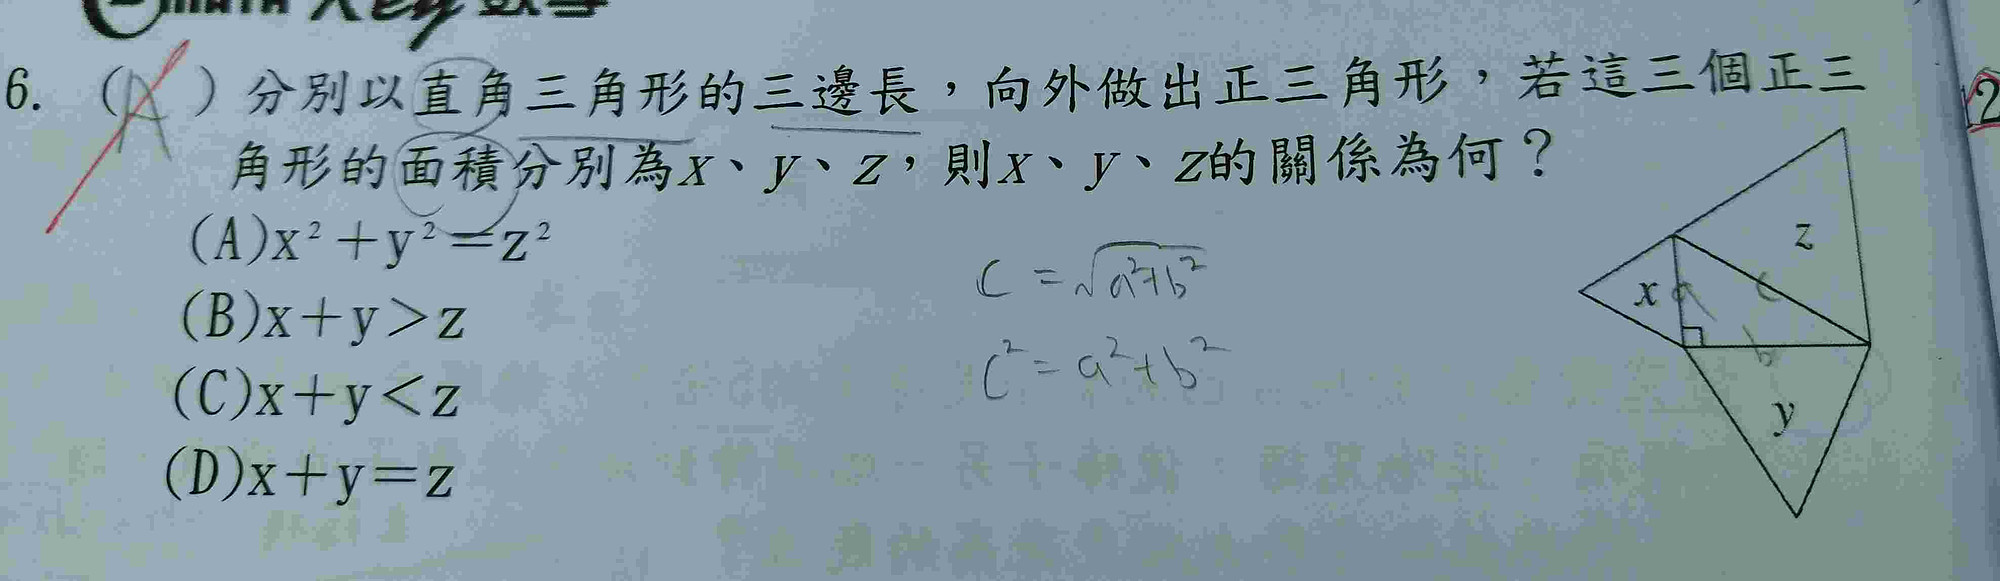 6. (A) 分別以直角三角形的三邊長,向外做出正三角形,若這三個正三
角形的面積分別為x、y、z,則x、y、z的關係為何?
(A)x²+y²=z²
(B)x+y>z
(C)x+y<z
(D)x+y=z
c=√a²+b²
c²=a²+b²
z
x a c
b
y
2